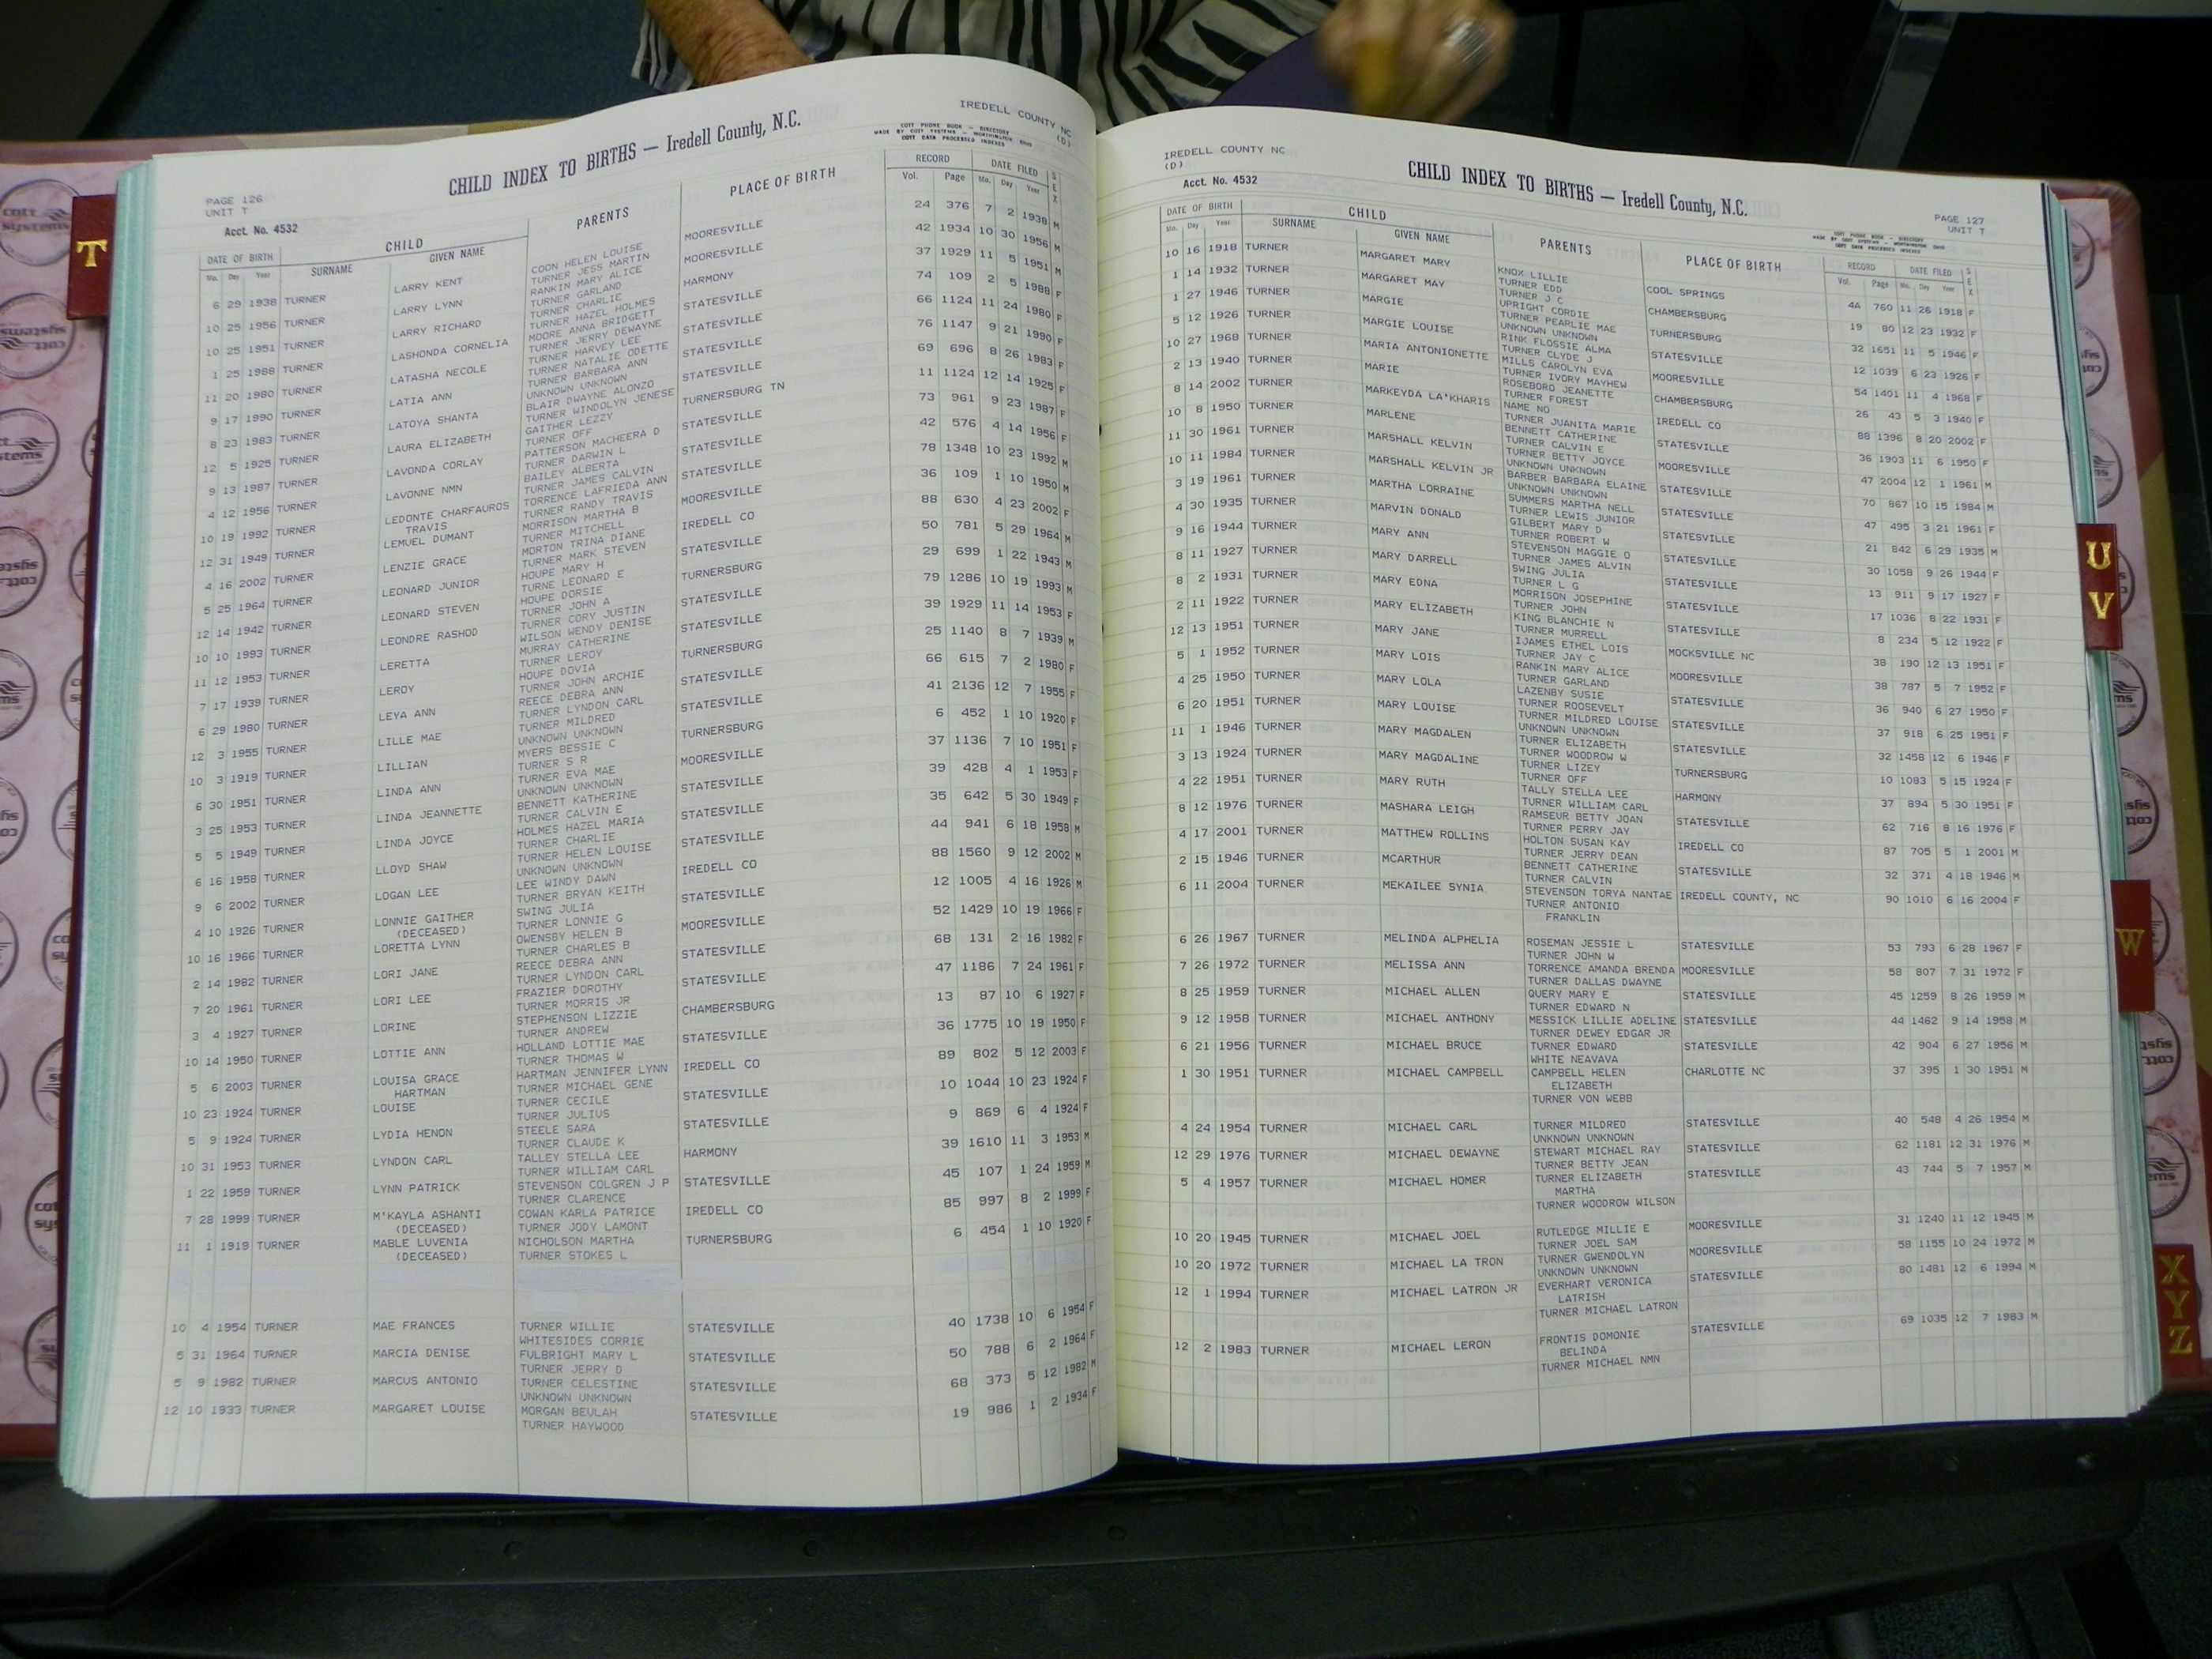 IREDELL COUNTY NC
(D)
COTT PHONE BOOK — DIRECTORY
MADE BY COTT SYSTEMS — WORTHINGTON OHIO
COTT DATA PROCESSED INDEXES
CHILD INDEX TO BIRTHS — Iredell County, N.C.
PAGE 126
UNIT T
Acct. No. 4532
DATE OF BIRTH CHILD PARENTS PLACE OF BIRTH RECORD DATE FILED SEX
Mo. Day Year SURNAME GIVEN NAME Vol. Page Mo. Day Year
6 29 1938 TURNER LARRY KENT COON HELEN LOUISE MOORESVILLE 24 376 7 2 1938 M
TURNER JESS MARTIN
10 25 1956 TURNER LARRY LYNN RANKIN MARY ALICE MOORESVILLE 42 1934 10 30 1956 M
TURNER GARLAND
10 25 1951 TURNER LARRY RICHARD TURNER CHARLIE HARMONY 37 1929 11 5 1951 M
TURNER HAZEL HOLMES
1 25 1988 TURNER LASHONDA CORNELIA MOORE ANNA BRIDGETT STATESVILLE 74 109 2 5 1988 F
TURNER JERRY DEWAYNE
11 20 1980 TURNER LATASHA NECOLE TURNER HARVEY LEE STATESVILLE 66 1124 11 24 1980 F
TURNER NATALIE ODETTE
9 17 1990 TURNER LATIA ANN TURNER BARBARA ANN STATESVILLE 76 1147 9 21 1990 F
UNKNOWN UNKNOWN
8 23 1983 TURNER LATOYA SHANTA BLAIR DWAYNE ALONZO STATESVILLE 69 696 8 26 1983 F
TURNER WINDOLYN JENESE
12 5 1925 TURNER LAURA ELIZABETH GAITHER LEZZY TURNERSBURG TN 11 1124 12 14 1925 F
TURNER OFF
9 13 1987 TURNER LAVONDA CORLAY PATTERSON MACHEERA D STATESVILLE 73 961 9 23 1987 F
TURNER DARWIN L
4 12 1956 TURNER LAVONNE NMN BAILEY ALBERTA STATESVILLE 42 576 4 14 1956 F
TURNER JAMES CALVIN
10 19 1992 TURNER LEDONTE CHARFAUROS TORRENCE LAFRIEDA ANN STATESVILLE 78 1348 10 23 1992 M
TRAVIS TURNER RANDY TRAVIS
12 31 1949 TURNER LEMUEL DUMANT MORRISON MARTHA B MOORESVILLE 36 109 1 10 1950 M
TURNER MITCHELL
4 16 2002 TURNER LENZIE GRACE MORTON TRINA DIANE IREDELL CO 88 630 4 23 2002 F
TURNER MARK STEVEN
5 25 1964 TURNER LEONARD JUNIOR HOUPE MARY H STATESVILLE 50 781 5 29 1964 M
TURNE LEONARD E
12 14 1942 TURNER LEONARD STEVEN HOUPE DORSIE TURNERSBURG 29 699 1 22 1943 M
TURNER JOHN A
10 10 1993 TURNER LEONDRE RASHOD TURNER CORY JUSTIN STATESVILLE 79 1286 10 19 1993 M
WILSON WENDY DENISE
11 12 1953 TURNER LERETTA MURRAY CATHERINE STATESVILLE 39 1929 11 14 1953 F
TURNER LEROY
7 17 1939 TURNER LEROY HOUPE DOVIA TURNERSBURG 25 1140 8 7 1939 M
TURNER JOHN ARCHIE
6 29 1980 TURNER LEYA ANN REECE DEBRA ANN STATESVILLE 66 615 7 2 1980 F
TURNER LYNDON CARL
12 3 1955 TURNER LILLE MAE TURNER MILDRED STATESVILLE 41 2136 12 7 1955 F
UNKNOWN UNKNOWN
10 3 1919 TURNER LILLIAN MYERS BESSIE C TURNERSBURG 6 452 1 10 1920 F
TURNER S R
6 30 1951 TURNER LINDA ANN TURNER EVA MAE MOORESVILLE 37 1136 7 10 1951 F
UNKNOWN UNKNOWN
3 25 1953 TURNER LINDA JEANNETTE BENNETT KATHERINE STATESVILLE 39 428 4 1 1953 F
TURNER CALVIN E
5 5 1949 TURNER LINDA JOYCE HOLMES HAZEL MARIA STATESVILLE 35 642 5 30 1949 F
TURNER CHARLIE
6 16 1958 TURNER LLOYD SHAW TURNER HELEN LOUISE STATESVILLE 44 941 6 18 1958 M
UNKNOWN UNKNOWN
9 6 2002 TURNER LOGAN LEE LEE WINDY DAWN IREDELL CO 88 1560 9 12 2002 M
TURNER BRYAN KEITH
4 10 1926 TURNER LONNIE GAITHER SWING JULIA STATESVILLE 12 1005 4 16 1926 M
(DECEASED) TURNER LONNIE G
10 16 1966 TURNER LORETTA LYNN OWENSBY HELEN B MOORESVILLE 52 1429 10 19 1966 F
TURNER CHARLES B
2 14 1982 TURNER LORI JANE REECE DEBRA ANN STATESVILLE 68 131 2 16 1982 F
TURNER LYNDON CARL
7 20 1961 TURNER LORI LEE FRAZIER DOROTHY STATESVILLE 47 1186 7 24 1961 F
TURNER MORRIS JR
3 4 1927 TURNER LORINE STEPHENSON LIZZIE CHAMBERSBURG 13 87 10 6 1927 F
TURNER ANDREW
10 14 1950 TURNER LOTTIE ANN HOLLAND LOTTIE MAE STATESVILLE 36 1775 10 19 1950 F
TURNER THOMAS W
5 6 2003 TURNER LOUISA GRACE HARTMAN JENNIFER LYNN IREDELL CO 89 802 5 12 2003 F
HARTMAN TURNER MICHAEL GENE
10 23 1924 TURNER LOUISE TURNER CECILE STATESVILLE 10 1044 10 23 1924 F
TURNER JULIUS
5 9 1924 TURNER LYDIA HENON STEELE SARA STATESVILLE 9 869 6 4 1924 F
TURNER CLAUDE K
10 31 1953 TURNER LYNDON CARL TALLEY STELLA LEE HARMONY 39 1610 11 3 1953 M
TURNER WILLIAM CARL
1 22 1959 TURNER LYNN PATRICK STEVENSON COLGREN J P STATESVILLE 45 107 1 24 1959 M
TURNER CLARENCE
7 28 1999 TURNER M'KAYLA ASHANTI COWAN KARLA PATRICE IREDELL CO 85 997 8 2 1999 F
(DECEASED) TURNER JODY LAMONT
11 1 1919 TURNER MABLE LUVENIA NICHOLSON MARTHA TURNERSBURG 6 454 1 10 1920 F
(DECEASED) TURNER STOKES L
10 4 1954 TURNER MAE FRANCES TURNER WILLIE STATESVILLE 40 1738 10 6 1954 F
WHITESIDES CORRIE
5 31 1964 TURNER MARCIA DENISE FULBRIGHT MARY L STATESVILLE 50 788 6 2 1964 F
TURNER JERRY D
5 9 1982 TURNER MARCUS ANTONIO TURNER CELESTINE STATESVILLE 68 373 5 12 1982 M
UNKNOWN UNKNOWN
12 10 1933 TURNER MARGARET LOUISE MORGAN BEULAH STATESVILLE 19 986 1 2 1934 F
TURNER HAYWOOD
T
IREDELL COUNTY NC
(D)
Acct. No. 4532
CHILD INDEX TO BIRTHS — Iredell County, N.C.
PAGE 127
UNIT T
DATE OF BIRTH CHILD PARENTS PLACE OF BIRTH RECORD DATE FILED SEX
Mo. Day Year SURNAME GIVEN NAME Vol. Page Mo. Day Year
10 16 1918 TURNER MARGARET MARY KNOX LILLIE COOL SPRINGS 4A 760 11 26 1918 F
TURNER EDD
1 14 1932 TURNER MARGARET MAY TURNER J C CHAMBERSBURG 19 80 12 23 1932 F
UPRIGHT CORDIE
1 27 1946 TURNER MARGIE TURNER PEARLIE MAE TURNERSBURG 32 1651 11 5 1946 F
UNKNOWN UNKNOWN
5 12 1926 TURNER MARGIE LOUISE RINK FLOSSIE ALMA STATESVILLE 12 1039 6 23 1926 F
TURNER CLYDE J
10 27 1968 TURNER MARIA ANTONIONETTE MILLS CAROLYN EVA MOORESVILLE 54 1401 11 4 1968 F
TURNER IVORY MAYHEW
2 13 1940 TURNER MARIE ROSEBORO JEANETTE CHAMBERSBURG 26 43 5 3 1940 F
TURNER FOREST
8 14 2002 TURNER MARKEYDA LA'KHARIS NAME NO IREDELL CO 88 1396 8 20 2002 F
TURNER JUANITA MARIE
10 8 1950 TURNER MARLENE BENNETT CATHERINE STATESVILLE 36 1903 11 6 1950 F
TURNER CALVIN E
11 30 1961 TURNER MARSHALL KELVIN TURNER BETTY JOYCE MOORESVILLE 47 2004 12 1 1961 M
UNKNOWN UNKNOWN
10 11 1984 TURNER MARSHALL KELVIN JR BARBER BARBARA ELAINE STATESVILLE 70 867 10 15 1984 M
UNKNOWN UNKNOWN
3 19 1961 TURNER MARTHA LORRAINE SUMMERS MARTHA NELL STATESVILLE 47 495 3 21 1961 F
TURNER LEWIS JUNIOR
4 30 1935 TURNER MARVIN DONALD GILBERT MARY D STATESVILLE 21 842 6 29 1935 M
TURNER ROBERT W
9 16 1944 TURNER MARY ANN STEVENSON MAGGIE O STATESVILLE 30 1058 9 26 1944 F
TURNER JAMES ALVIN
8 11 1927 TURNER MARY DARRELL SWING JULIA STATESVILLE 13 911 9 17 1927 F
TURNER L G
8 2 1931 TURNER MARY EDNA MORRISON JOSEPHINE STATESVILLE 17 1036 8 22 1931 F
TURNER JOHN
2 11 1922 TURNER MARY ELIZABETH KING BLANCHIE N STATESVILLE 8 234 5 12 1922 F
TURNER MURRELL
12 13 1951 TURNER MARY JANE IJAMES ETHEL LOIS MOCKSVILLE NC 38 190 12 13 1951 F
TURNER JAY C
5 1 1952 TURNER MARY LOIS RANKIN MARY ALICE MOORESVILLE 38 787 5 7 1952 F
TURNER GARLAND
4 25 1950 TURNER MARY LOLA LAZENBY SUSIE STATESVILLE 36 940 6 27 1950 F
TURNER ROOSEVELT
6 20 1951 TURNER MARY LOUISE TURNER MILDRED LOUISE STATESVILLE 37 918 6 25 1951 F
UNKNOWN UNKNOWN
11 1 1946 TURNER MARY MAGDALEN TURNER ELIZABETH STATESVILLE 32 1458 12 6 1946 F
TURNER WOODROW W
3 13 1924 TURNER MARY MAGDALINE TURNER LIZEY TURNERSBURG 10 1083 5 15 1924 F
TURNER OFF
4 22 1951 TURNER MARY RUTH TALLY STELLA LEE HARMONY 37 894 5 30 1951 F
TURNER WILLIAM CARL
8 12 1976 TURNER MASHARA LEIGH RAMSEUR BETTY JOAN STATESVILLE 62 716 8 16 1976 F
TURNER PERRY JAY
4 17 2001 TURNER MATTHEW ROLLINS HOLTON SUSAN KAY IREDELL CO 87 705 5 1 2001 M
TURNER JERRY DEAN
2 15 1946 TURNER MCARTHUR BENNETT CATHERINE STATESVILLE 32 371 4 18 1946 M
TURNER CALVIN
6 11 2004 TURNER MEKAILEE SYNIA STEVENSON TORYA NANTAE IREDELL COUNTY, NC 90 1010 6 16 2004 F
TURNER ANTONIO
FRANKLIN
6 26 1967 TURNER MELINDA ALPHELIA ROSEMAN JESSIE L STATESVILLE 53 793 6 28 1967 F
TURNER JOHN W
7 26 1972 TURNER MELISSA ANN TORRENCE AMANDA BRENDA MOORESVILLE 58 807 7 31 1972 F
TURNER DALLAS DWAYNE
8 25 1959 TURNER MICHAEL ALLEN QUERY MARY E STATESVILLE 45 1259 8 26 1959 M
TURNER EDWARD N
9 12 1958 TURNER MICHAEL ANTHONY MESSICK LILLIE ADELINE STATESVILLE 44 1462 9 14 1958 M
TURNER DEWEY EDGAR JR
6 21 1956 TURNER MICHAEL BRUCE TURNER EDWARD STATESVILLE 42 904 6 27 1956 M
WHITE NEAVAVA
1 30 1951 TURNER MICHAEL CAMPBELL CAMPBELL HELEN CHARLOTTE NC 37 395 1 30 1951 M
ELIZABETH
TURNER VON WEBB
4 24 1954 TURNER MICHAEL CARL TURNER MILDRED STATESVILLE 40 548 4 26 1954 M
UNKNOWN UNKNOWN
12 29 1976 TURNER MICHAEL DEWAYNE STEWART MICHAEL RAY STATESVILLE 62 1181 12 31 1976 M
TURNER BETTY JEAN
5 4 1957 TURNER MICHAEL HOMER TURNER ELIZABETH STATESVILLE 43 744 5 7 1957 M
MARTHA
TURNER WOODROW WILSON
10 20 1945 TURNER MICHAEL JOEL RUTLEDGE MILLIE E MOORESVILLE 31 1240 11 12 1945 M
TURNER JOEL SAM
10 20 1972 TURNER MICHAEL LA TRON TURNER GWENDOLYN MOORESVILLE 58 1155 10 24 1972 M
UNKNOWN UNKNOWN
12 1 1994 TURNER MICHAEL LATRON JR EVERHART VERONICA STATESVILLE 80 1481 12 6 1994 M
LATRISH
TURNER MICHAEL LATRON
12 2 1983 TURNER MICHAEL LERON FRONTIS DOMONIE STATESVILLE 69 1035 12 7 1983 M
BELINDA
TURNER MICHAEL NMN
U
V
W
X
Y
Z
cott
systems